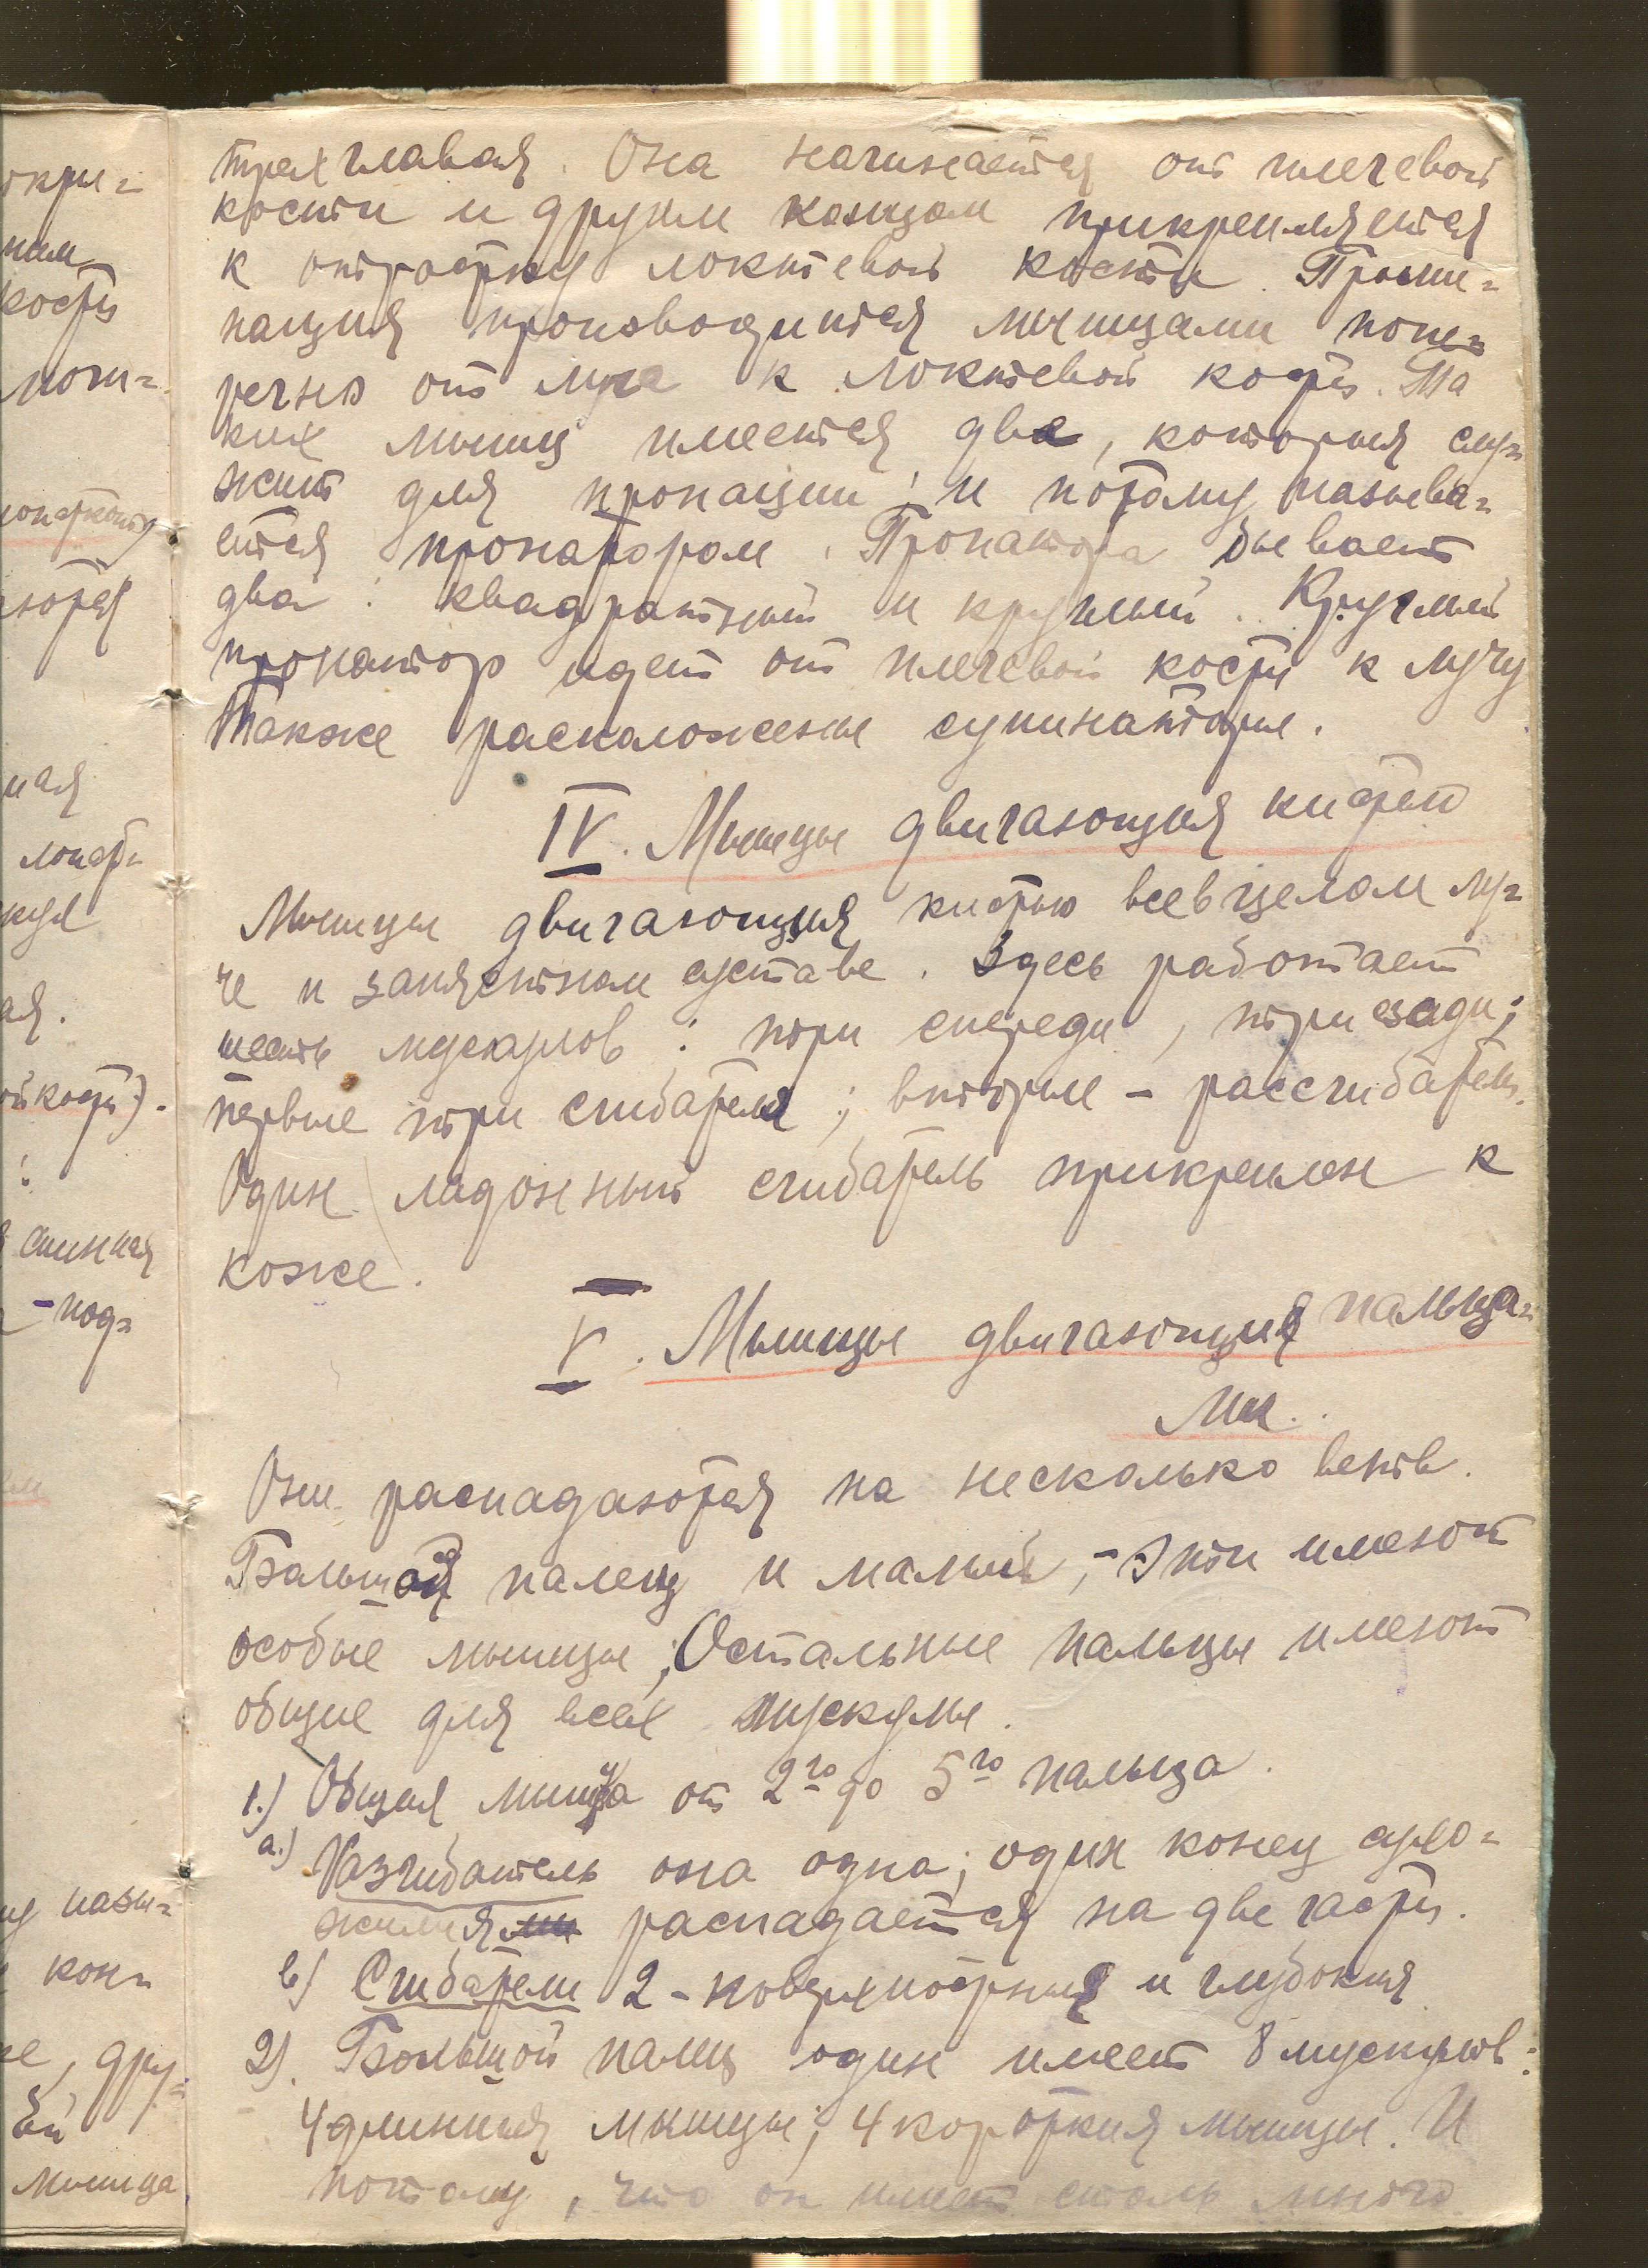 трех главая. Она начинается от плечевой
кости и другим концом прикрепляется
к отростку локтевой кости. Прони-
нация производится мышцами попе-
речно от луча к локтевой кости. Та
ких мышц имеется две, которыя слу-
жит для пронации; и потому называ-
ется пронатором. Пронатора бывает
два: квадратный и круглый. Круглый
пронатор идет от плечевой кости к лучу
Также расположены супинаторы.
IV. Мышцы двигающия кистей
Мышцы двигающия кистью всевцелом лу-
че и запястном суставе. Здесь работает
шесть мускулов: три спереди, три сзади;
первые три сгибателя; вторые - рассгибатели.
Один ладонный сгибатель прикреплен к
коже.
V. Мышцы двигающия пальца-
ми.
Они распадаются на несколько ветв.
Большой палец и малый, - эти имеют
особые мышцы; Остальные пальцы имеют
общие для всех мускулы.
1.) Общая мышца от 2го до 5го пальца.
а.) Разгибатель она одна; один конец сухо-
жилия распадается на две части.
в) Сгибатели 2 - поверхностныя и глубокия
2). Большой палец один имеет 8 мускулов:
4 длинныя мышцы; 4 короткия мышцы. И
потому, что он имеет столь много
окри-
ним
кости
ются
ная
лопат-
ая.
ой кости).
спинная
- под-
назы-
кон-
дру-
ей
мышца